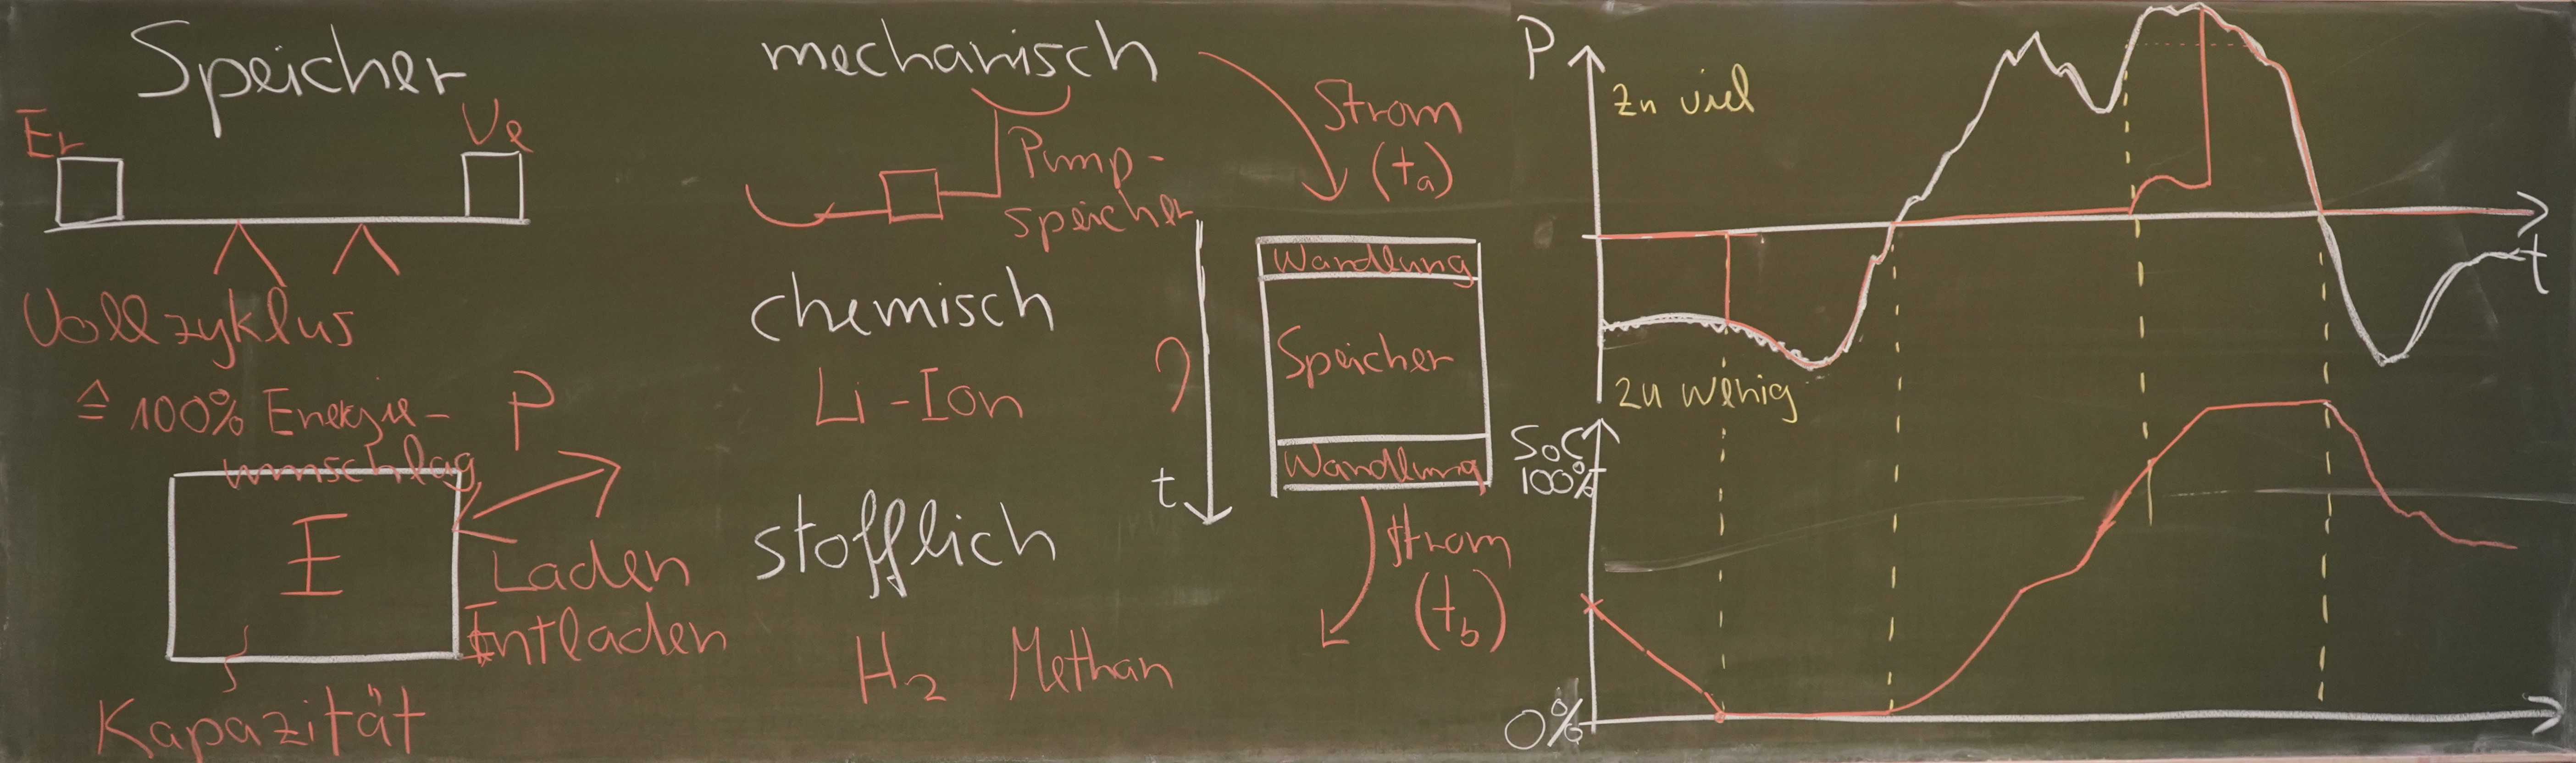 Speicher
Er
Ve
Vollzyklus
≙ 100% Energie-
umschlag
P
E
Laden
Entladen
Kapazität
mechanisch
Pump-
speicher
chemisch
Li-Ion
stofflich
H₂ Methan
Strom
(ta)
?
t
Wandlung
Speicher
Wandlung
Strom
(tb)
P
Zu viel
t
zu wenig
SoC
100%
0%